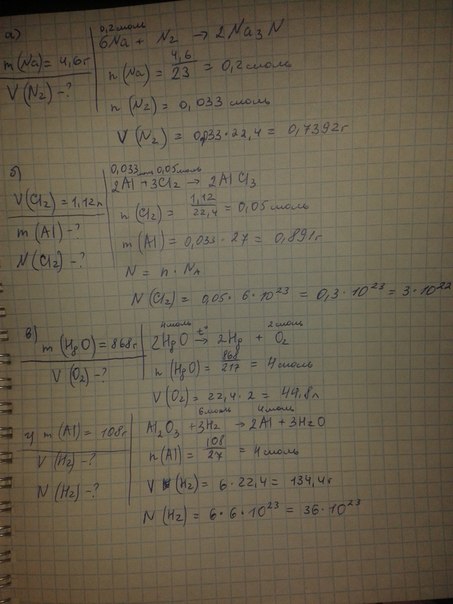 а)
m(Na) = 4,6г
V(N₂) - ?
0,2 моль
6Na + N₂ → 2Na₃N
n(Na) = 4,6/23 = 0,2 моль
n(N₂) = 0,033 моль
V(N₂) = 0,033 · 22,4 = 0,7392 г
б)
V(Cl₂) = 1,12 л
m(Al) - ?
N(Cl₂) - ?
0,033 моль 0,05 моль
2Al + 3Cl₂ → 2AlCl₃
n(Cl₂) = 1,12/22,4 = 0,05 моль
m(Al) = 0,033 · 27 = 0,891 г
N = n · Nₐ
N(Cl₂) = 0,05 · 6 · 10²³ = 0,3 · 10²³ = 3 · 10²²
в)
m(HgO) = 868 г
V(O₂) - ?
4 моль 2 моль
2HgO →t° 2Hg + O₂
n(HgO) = 868/217 = 4 моль
V(O₂) = 22,4 · 2 = 44,8 л
г) m(Al) = 108 г
V(H₂) - ?
N(H₂) - ?
6 моль 4 моль
Al₂O₃ + 3H₂ → 2Al + 3H₂O
n(Al) = 108/27 = 4 моль
V(H₂) = 6 · 22,4 = 134,4 г
N(H₂) = 6 · 6 · 10²³ = 36 · 10²³